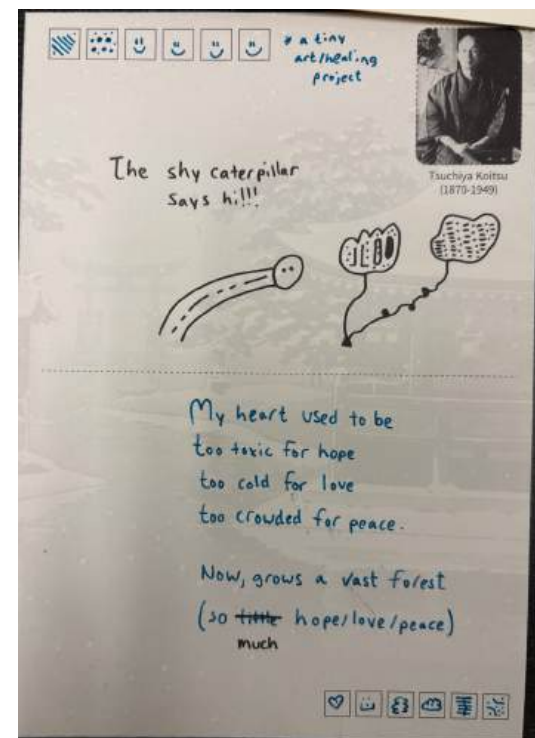 * a tiny
art/healing
project
Tsuchiya Koitsu
(1870-1949)
The shy caterpillar
says hi!!!
My heart used to be
too toxic for hope
too cold for love
too crowded for peace.
Now, grows a vast forest
(so little hope/love/peace)
much